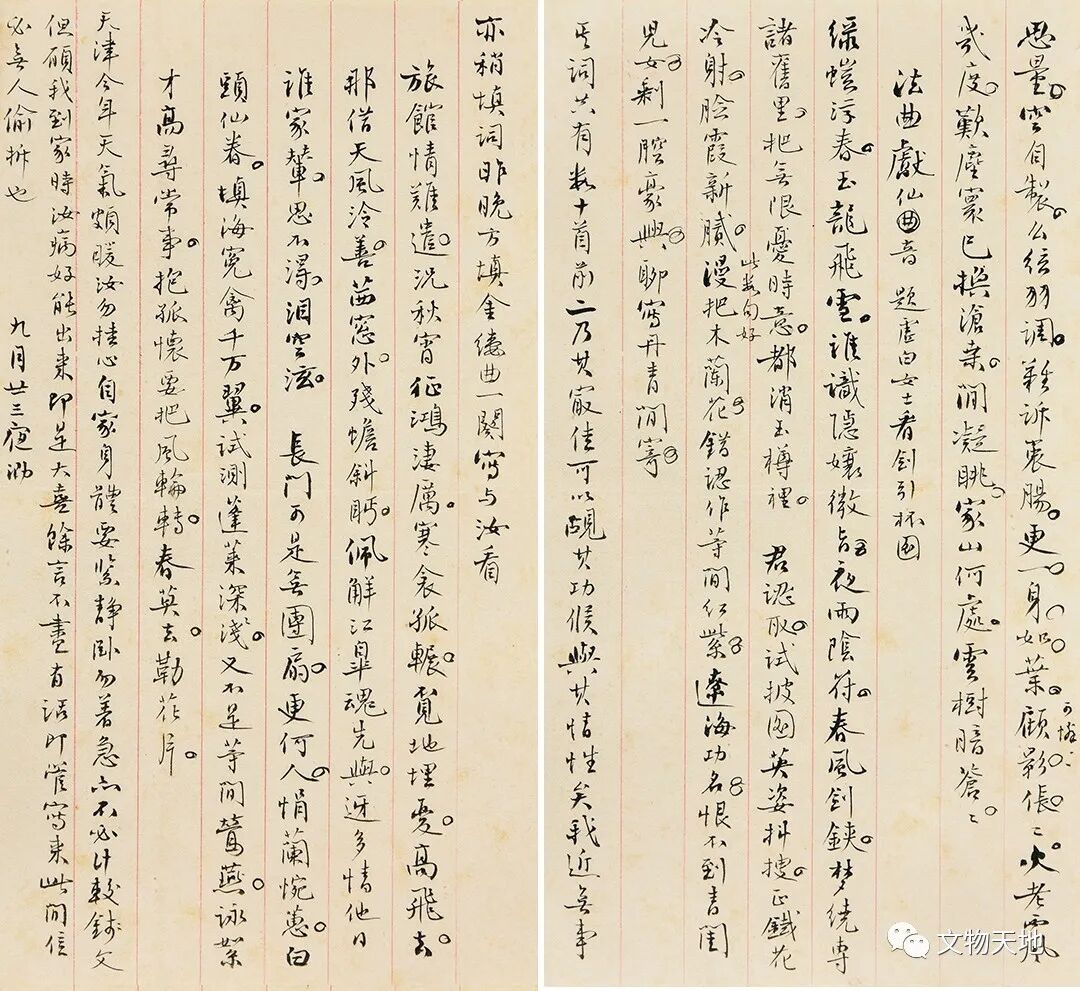 思量。空自製。么絃羽調。難訴衷腸。更一身如葉。顧影倀〻。
可憐
幾度。歎塵寰已換滄桑。閒凝眺。家山何處。雲樹暗蒼〻。
法曲獻仙音 題虛白女士看劍引杯圖
綠螘浮春。玉龍飛雪。誰識隱孃微旨。夜雨陰符。春風劍鋏。夢繞專
諸舊里。把無限憂時意。都消玉樽裡。 君認取。試披圖英姿抖擻。正鐵花
此數句好
冷射。臉霞新膩。漫把木蘭花。錯認作等閒紅紫。遼海功名。恨不到青閨
兒女。剩一腔豪興。聊寫丹青閒寄。
其詞共有數十首前二乃其最佳可以覘其功候與其情性矣我近無事
亦稍填詞昨晚方填金縷曲一闋寫与汝看
旅館情難遣。況秋宵征鴻淒厲。寒衾孤輾。覓地埋憂。高飛去。
那借天風泠善。茜窓外。殘蟾斜眄。佩解江皋魂先與。迓多情他日
誰家輦。思不得。淚空泫。 長門可是無團扇。更何人。悁蘭惋蕙。白
頭仙眷。填海冤禽千万翼。試測蓬萊深淺。又不是等閒鶯燕。詠絮
才高尋常事。抱孤懷要把風輪轉。春莫去。勒花片。
天津今年天氣頗暖汝勿挂心自家身體要緊靜臥勿著急亦不必計較錢文
但願我到家時汝病好能出來即是大喜餘言不盡有話即管寫來此間信
必無人偷拆也 九月廿三夜泐
文物天地